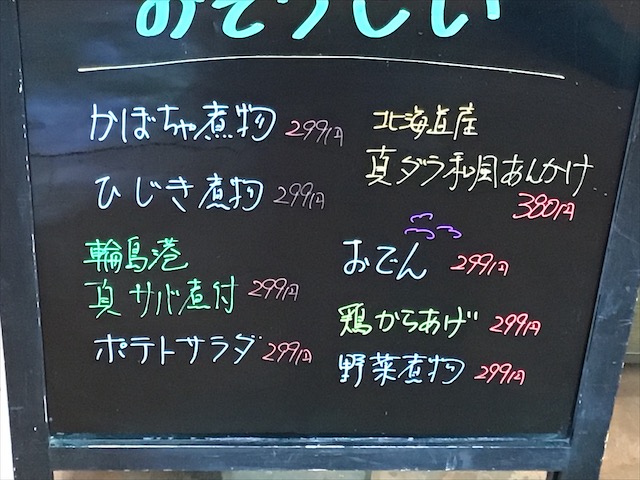 おそうしい
かぼちゃ煮物 299円
ひじき煮物 299円
輪島港
真サバ煮付 299円
ポテトサラダ 299円
北海道産
真ダラ和風あんかけ
380円
おでん 299円
鶏からあげ 299円
野菜煮物 299円